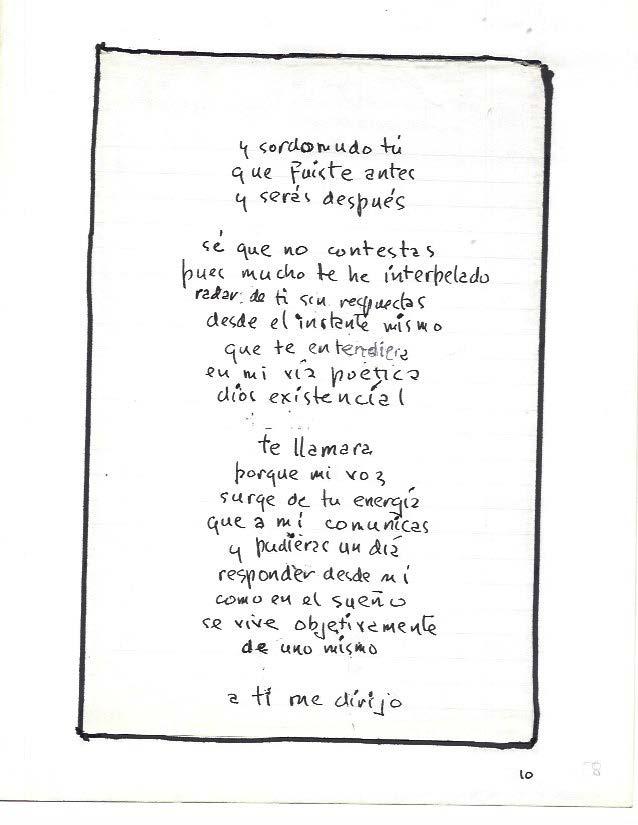 y sordomudo tú
que fuiste antes
y serás después
sé que no contestas
pues mucho te he interpelado
radar de ti sin respuestas
desde el instante mismo
que te entendiera
en mi vía poética
dios existencial
te llamara
porque mi voz
surge de tu energía
que a mí comunicas
y pudieras un día
responder desde mí
como en el sueño
se vive objetivamente
de uno mismo
a ti me dirijo
10